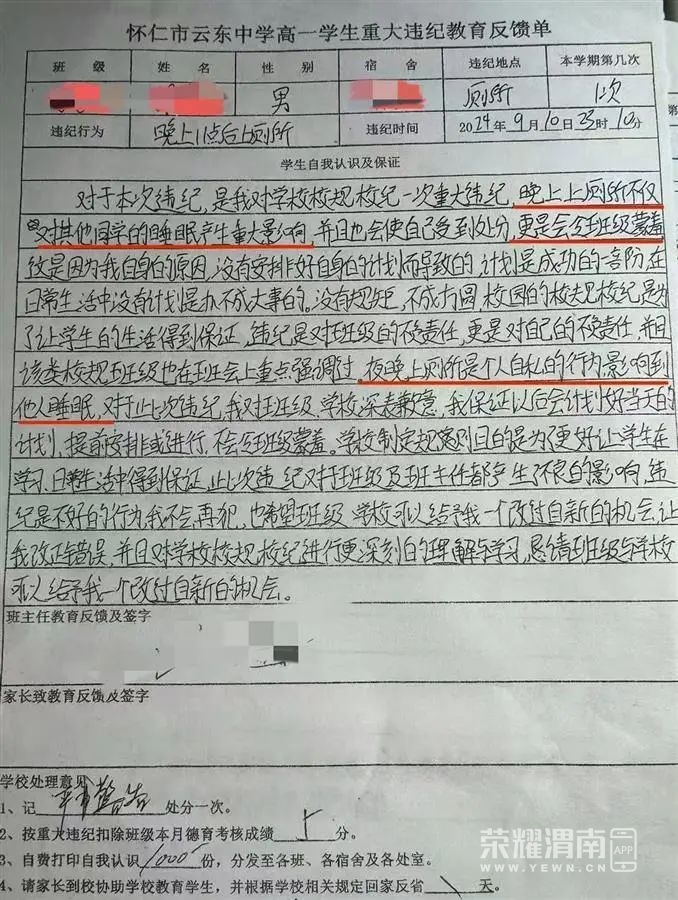 怀仁市云东中学高一学生重大违纪教育反馈单
班 级 姓 名 性 别 宿 舍 违纪地点 本学期第几次
男 厕所 1次
违纪行为 晚上11点后上厕所 违纪时间 2024年9月10日23时10分
学生自我认识及保证
对于本次违纪,是我对学校校规校纪一次重大违纪,晚上上厕所不仅
对其他同学的睡眠产生重大影响,并且也会使自己受到处分,更是会给班级蒙羞
这是因为我自身的原因,没有安排好自身的计划而导致的,计划是成功的一部份,在
日常生活中没有计划是办不成大事的。没有规矩,不成方圆,校园的校规校纪,是为
了让学生的生活得到保证,违纪是对班级的不负责任,更是对自己的不负责任,并且
该类校规班级也在班会上重点强调过,夜晚上厕所是个人自私的行为,影响到
他人睡眠,对于此次违纪,我对班级、学校深表歉意,我保证以后会计划好当天的
计划,提前安排或进行,不会给班级蒙羞。学校制定规则目的是为了更好让学生在
学习、日常生活中得到保证,此次违纪对于班级及班主任都产生了不良的影响,违
纪是不好的行为我不会再犯,也希望班级、学校可以给予我一个改过自新的机会,让
我改正错误,并且对学校校规、校纪进行更深刻的理解与学习,恳请班级与学校
可以给予我一个改过自新的机会。
班主任教育反馈及签字
家长致教育反馈及签字
学校处理意见
1、记 警告 处分一次。
2、按重大违纪扣除班级本月德育考核成绩 5 分。
3、自费打印自我认识 1000 份,分发至各班、各宿舍及各处室。
4、请家长到校协助学校教育学生,并根据学校相关规定回家反省 \ 天。
荣耀渭南 APP
WWW.YEWN.CN